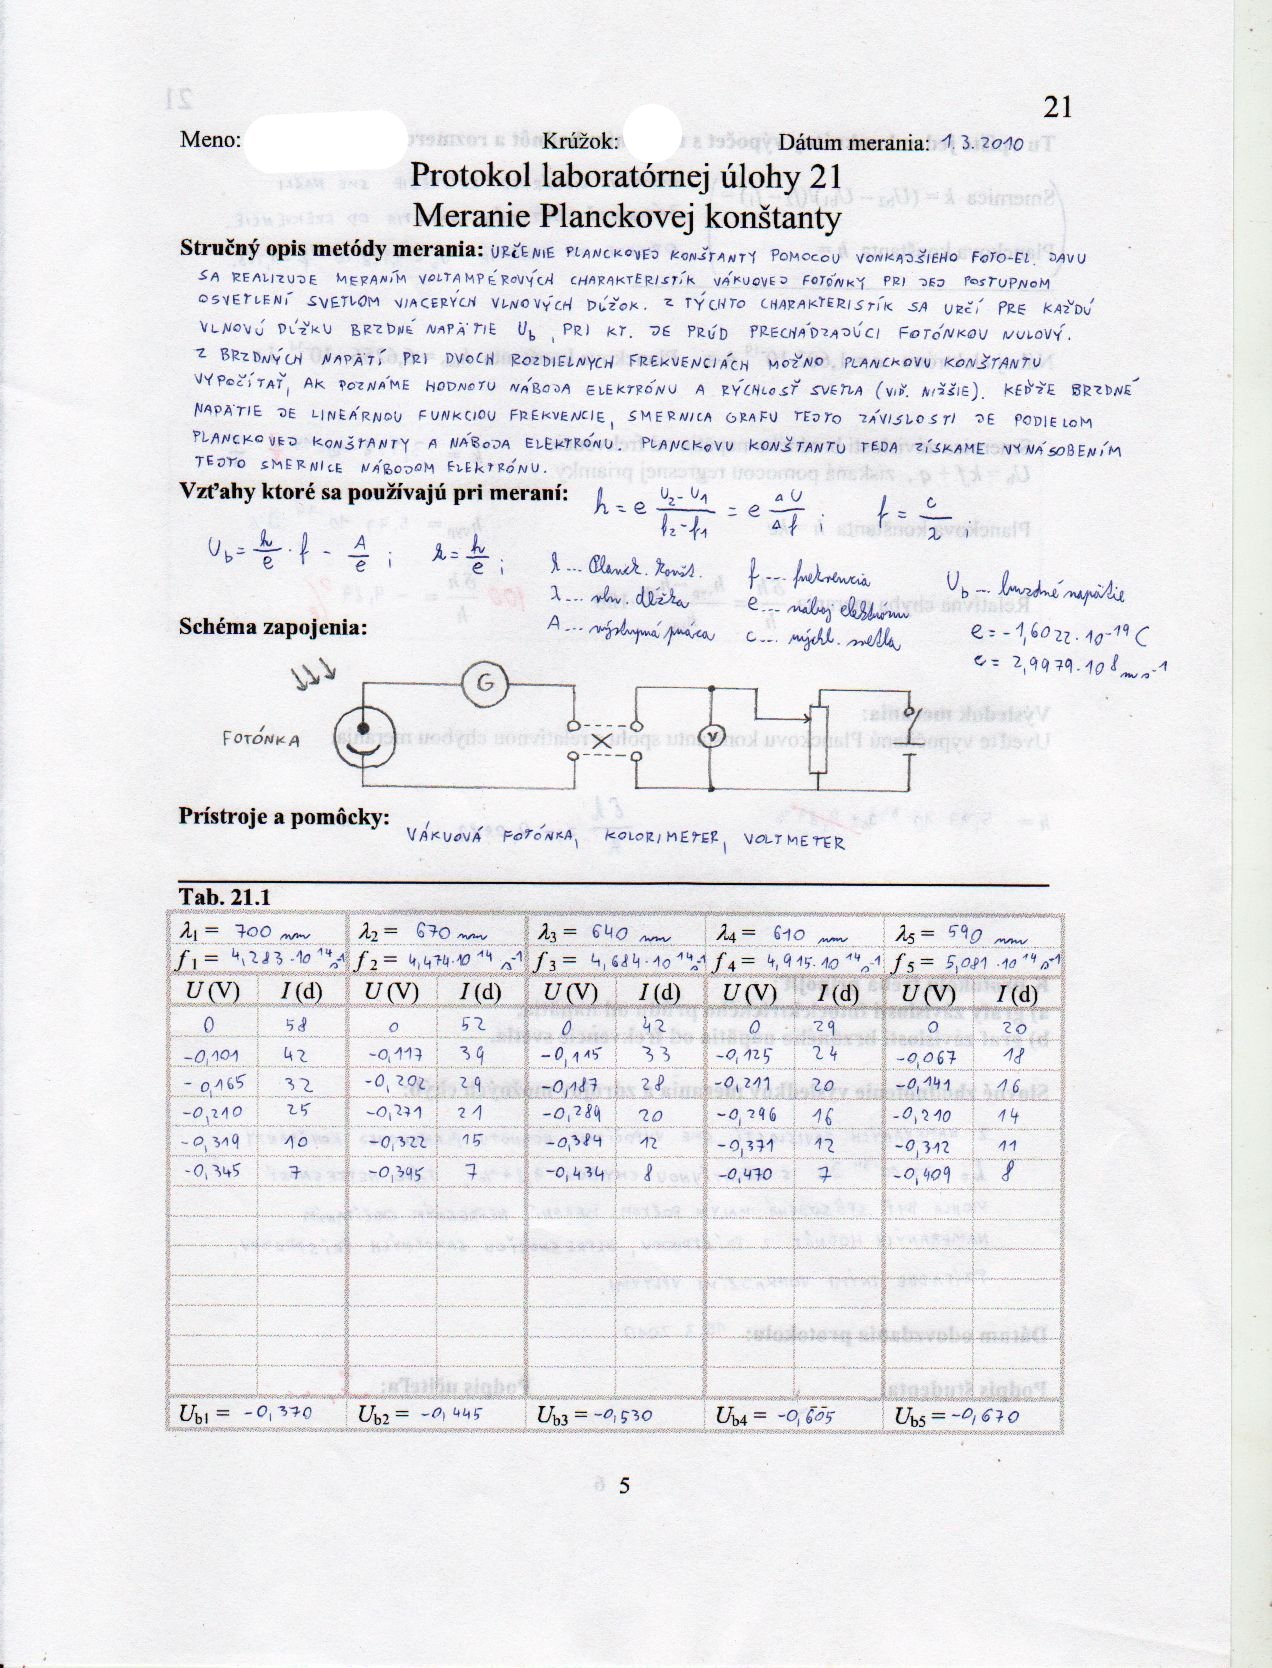 21
Meno: Krúžok: Dátum merania: 1.3.2010
Protokol laboratórnej úlohy 21
Meranie Planckovej konštanty
Stručný opis metódy merania: URČENIE PLANCKOVEJ KONŠTANTY POMOCOU VONKAJŠIEHO FOTO-EL. JAVU
SA REALIZUJE MERANÍM VOLTAMPÉROVÝCH CHARAKTERISTÍK VÁKUOVEJ FOTÓNKY PRI JEJ POSTUPNOM
OSVETLENÍ SVETLOM VIACERÝCH VLNOVÝCH DĹŽOK. Z TÝCHTO CHARAKTERISTÍK SA URČÍ PRE KAŽDÚ
VLNOVÚ DĹŽKU BRZDNÉ NAPÄTIE Ub, PRI KT. JE PRÚD PRECHÁDZAJÚCI FOTÓNKOU NULOVÝ.
Z BRZDNÝCH NAPÄTÍ PRI DVOCH ROZDIELNYCH FREKVENCIÁCH MOŽNO PLANCKOVU KONŠTANTU
VYPOČÍTAŤ, AK POZNÁME HODNOTU NÁBOJA ELEKTRÓNU A RÝCHLOSŤ SVETLA (VIĎ. NIŽŠIE). KEĎŽE BRZDNÉ
NAPÄTIE JE LINEÁRNOU FUNKCIOU FREKVENCIE, SMERNICA GRAFU TEJTO ZÁVISLOSTI JE PODIELOM
PLANCKOVEJ KONŠTANTY A NÁBOJA ELEKTRÓNU. PLANCKOVU KONŠTANTU TEDA ZÍSKAME VYNÁSOBENÍM
TEJTO SMERNICE NÁBOJOM ELEKTRÓNU.
Vzťahy ktoré sa používajú pri meraní: h = e (U2-U1)/(f2-f1) = e ΔU/Δf ; f = c/λ ;
Ub = h/e · f - A/e ; k = h/e ;
h ... Planck. konšt. f ... frekvencia Ub ... brzdné napätie
λ ... vln. dĺžka e ... náboj elektrónu
A ... výstupná práca c ... rýchl. svetla e = -1,6022·10-19 C
Schéma zapojenia:
c = 2,9979·10 8 m s-1
G
FOTÓNKA V
Prístroje a pomôcky: VÁKUOVÁ FOTÓNKA, KOLORIMETER, VOLTMETER
Tab. 21.1
λ1 = 700 nm λ2 = 670 nm λ3 = 640 nm λ4 = 610 nm λ5 = 590 nm
f1 = 4,283·10 14 s-1 f2 = 4,474·10 14 s-1 f3 = 4,684·10 14 s-1 f4 = 4,915·10 14 s-1 f5 = 5,081·10 14 s-1
U (V) I (d) U (V) I (d) U (V) I (d) U (V) I (d) U (V) I (d)
0 58 0 52 0 42 0 29 0 20
-0,101 42 -0,117 39 -0,115 33 -0,125 24 -0,067 18
-0,165 32 -0,202 29 -0,187 28 -0,211 20 -0,141 16
-0,210 25 -0,271 21 -0,289 20 -0,296 16 -0,210 14
-0,319 10 -0,322 15 -0,384 12 -0,371 12 -0,312 11
-0,345 7 -0,395 7 -0,434 8 -0,470 7 -0,409 8
Ub1 = -0,370 Ub2 = -0,445 Ub3 = -0,530 Ub4 = -0,605 Ub5 = -0,670
5